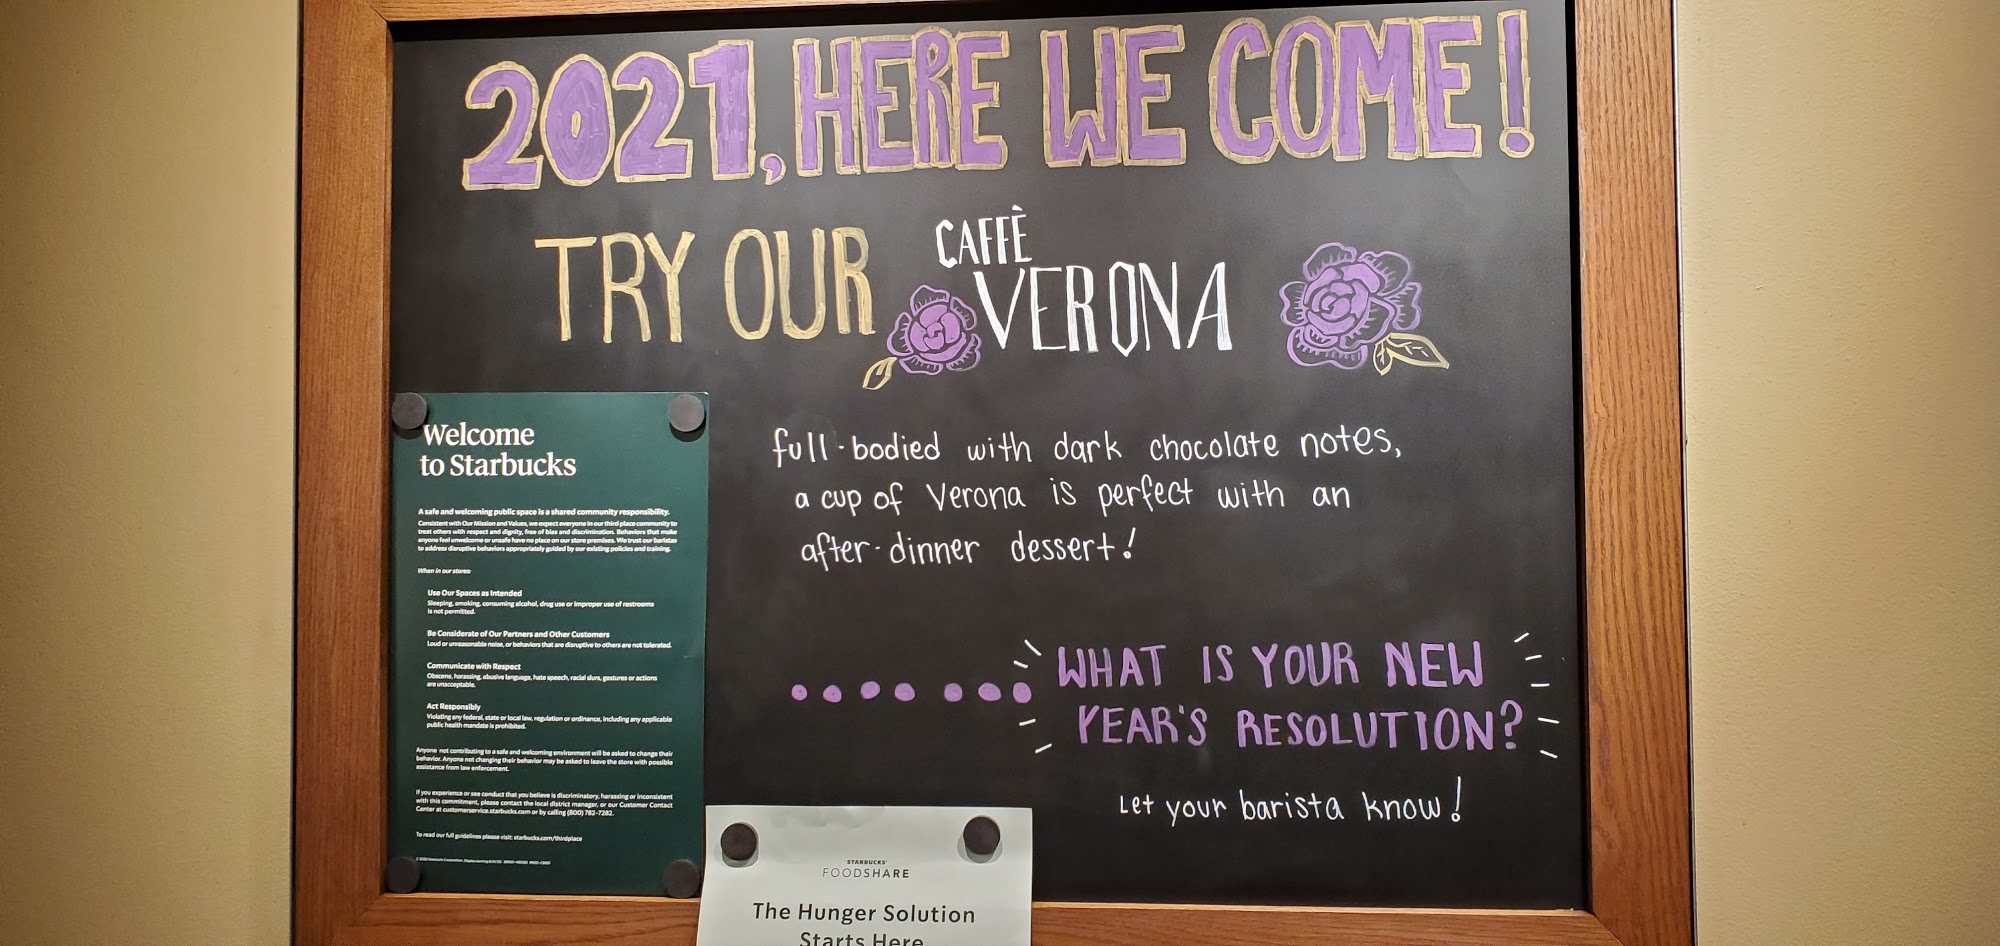 2021, HERE WE COME!
TRY OUR CAFFÈ
VERONA
full-bodied with dark chocolate notes,
a cup of Verona is perfect with an
after-dinner dessert!
WHAT IS YOUR NEW
YEAR'S RESOLUTION?
Let your barista know!
Welcome
to Starbucks
A safe and welcoming public space is a shared community responsibility.
Consistent with Our Mission and Values, we expect everyone in our third place community to
treat others with respect and dignity, free of bias and discrimination. Behaviors that make
anyone feel unwelcome or unsafe have no place in our store premises. We trust our baristas
to address disruptive behaviors appropriately guided by our existing policies and training.
When in our stores:
Use Our Spaces as Intended
Sleeping, smoking, consuming alcohol, drug use or improper use of restrooms
is not permitted.
Be Considerate of Our Partners and Other Customers
Loud or unreasonable noise, or behaviors that are disruptive to others are not tolerated.
Communicate with Respect
Obscene, harassing, abusive language, hate speech, racial slurs, gestures or actions
are unacceptable.
Act Responsibly
Violating any federal, state or local law, regulation or ordinance, including any applicable
public health mandate is prohibited.
Anyone not contributing to a safe and welcoming environment will be asked to change their
behavior. Anyone not changing their behavior may be asked to leave the store with possible
assistance from law enforcement.
If you experience or see conduct that you believe is discriminatory, harassing or inconsistent
with this commitment, please contact the local district manager, or our Customer Contact
Center at customerservice.starbucks.com or by calling (800) 782-7282.
To read our full guidelines please visit: starbucks.com/thirdplace
STARBUCKS
FOODSHARE
The Hunger Solution
Starts Here